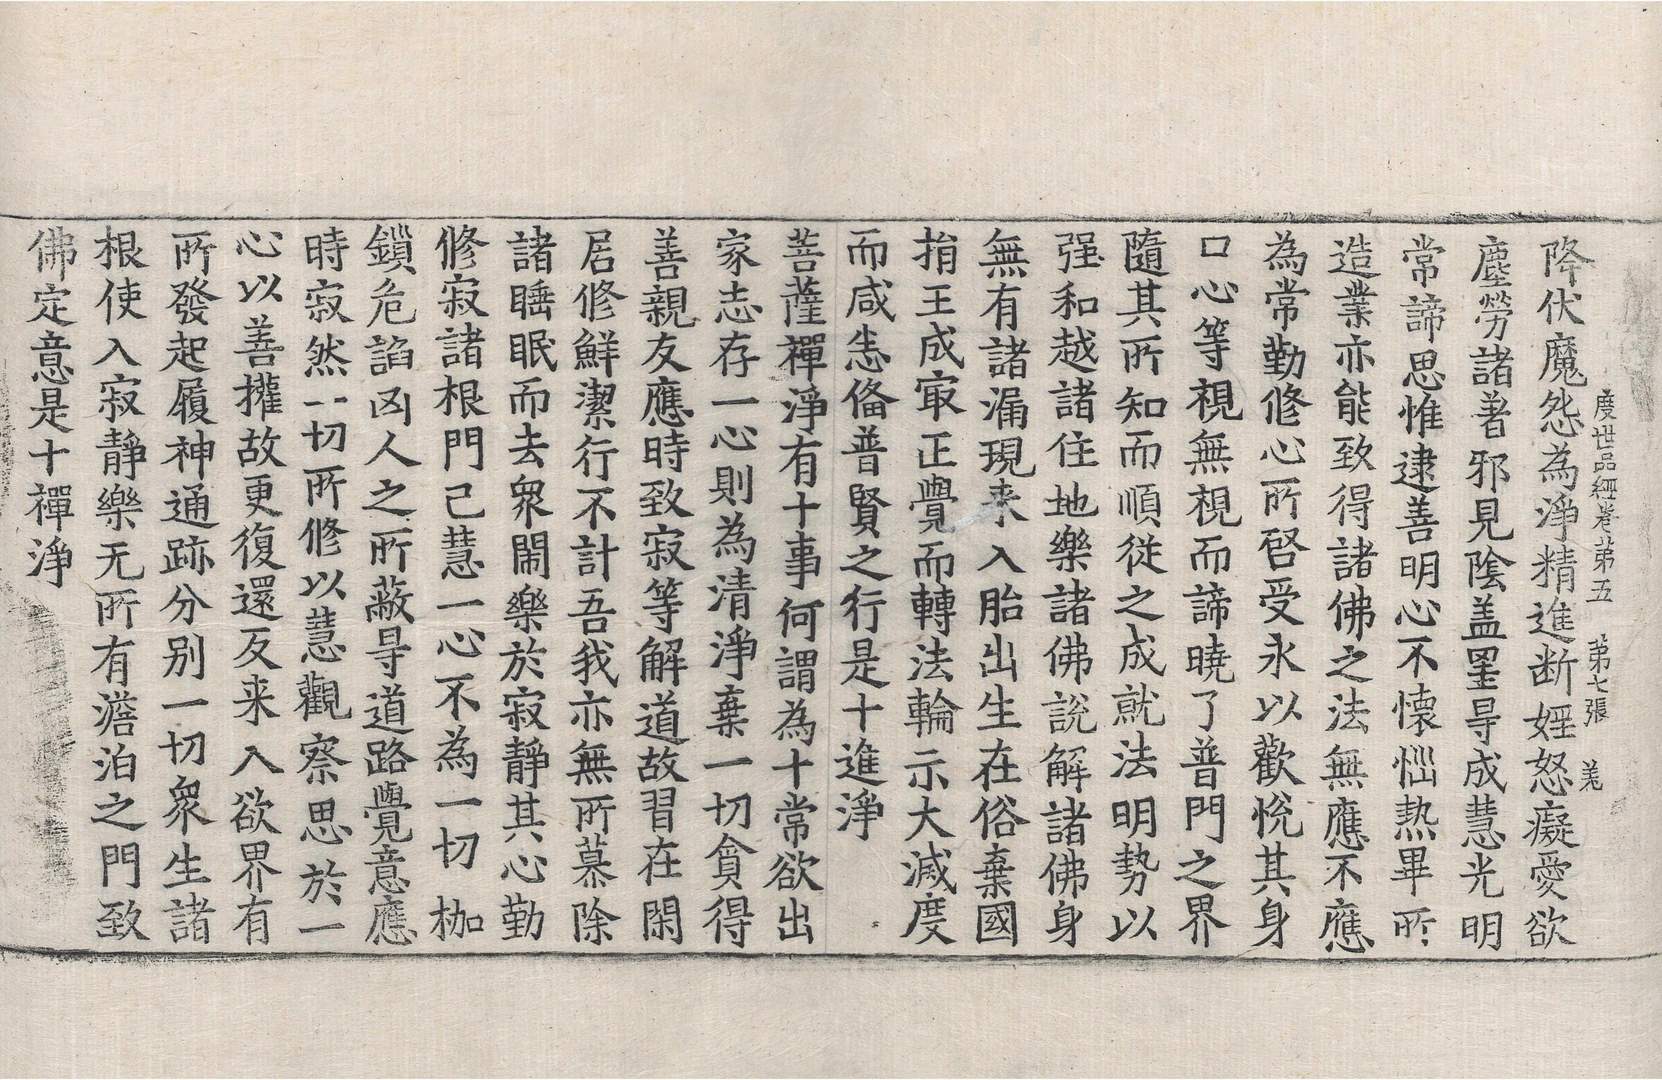 度世品經卷第五　第七張　羗
降伏魔怨為淨精進断婬怒癡愛欲
塵勞諸著邪見陰盖罣㝵成慧光明
常諦思惟逮善明心不懷惱熱畢所
造業亦能致得諸佛之法無應不應
為常勤修心所啓受永以歡悅其身
口心等視無視而諦曉了普門之界
隨其所知而順從之成就法明勢以
强和越諸住地樂諸佛說解諸佛身
無有諸漏現来入胎出生在俗棄國
捐王成㝡正覺而轉法輪示大滅度
而咸恙俻普賢之行是十進淨
菩薩禪淨有十事何謂為十常欲出
家志存一心則為清淨棄一切貪得
善親友應時致寂等解道故習在閑
居修鮮潔行不計吾我亦無所慕除
諸睡眠而去衆閙樂於寂靜其心勤
修寂諸根門己慧一心不為一切枷
鎖危諂凶人之所蔽㝵道路覺意應
時寂然一切所修以慧觀察思於一
心以善攉故更復還反来入欲界有
所發起履神通跡分別一切衆生諸
根使入寂靜樂无所有澹泊之門致
佛定意是十禪淨